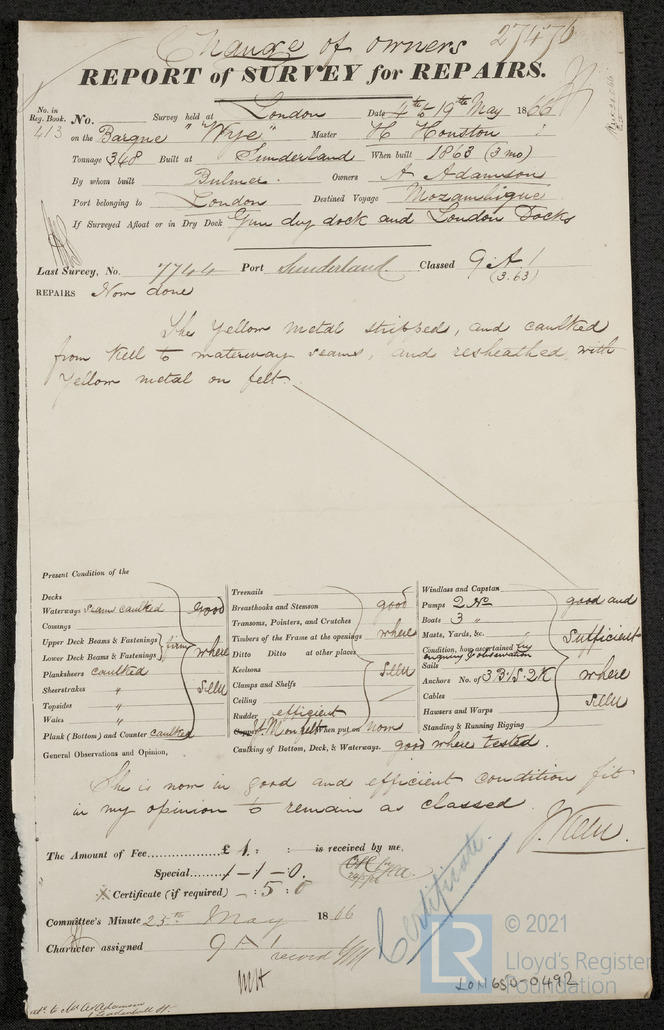 Change of owners 27476
REPORT of SURVEY for REPAIRS.
No. in Reg. Book. No. Survey held at London Date 4th to 19th May 1866
413 on the Barque "Wye" Master H Houston
Tonnage 348 Built at Sunderland When built 1863 (3 mo)
By whom built Bulmer. Owners A Adamson
Port belonging to London Destined Voyage Mozambique
If Surveyed Afloat or in Dry Dock Gun dry dock and London Docks
Last Survey, No. 7744 Port Sunderland. Classed 9.A 1
(3.63)
REPAIRS Now done
The Yellow metal stripped, and caulked
from keel to waterway seams, and resheathed with
Yellow metal on felt.
Present Condition of the
Decks
Waterways seams caulked good
Comings
Upper Deck Beams & Fastenings } firm
Lower Deck Beams & Fastenings } where
Planksheers caulked
Sheerstrakes " seen
Topsides "
Wales "
Plank (Bottom) and Counter caulked
General Observations and Opinion,
Treenails
Breasthooks and Stemson good
Transoms, Pointers, and Crutches
Timbers of the Frame at the openings where
Ditto Ditto at other places
Keelsons seen
Clamps and Shelfs
Ceiling
Rudder efficient
Copper Y.M on felt when put on now
Caulking of Bottom, Deck, & Waterways. good where tested.
Windlass and Capstan good and
Pumps 2 No
Boats 3 "
Masts, Yards, &c. sufficient
Condition, how ascertained by
enquiry & observation
Sails
Anchors No. of 3 B. 1 S. 2 K where
Cables
Hawsers and Warps seen
Standing & Running Rigging
She is now in good and efficient condition fit
in my opinion to remain as classed.
The Amount of Fee............... £ 1 : : is received by me,
Special........ 1 - 1 - 0.
Certificate (if required) - : 5 : 0
Certificate.
Committee's Minute 25th May 1866
Character assigned 9 A 1
record
© 2021
LR Lloyd's Register
Foundation
LON650-0492